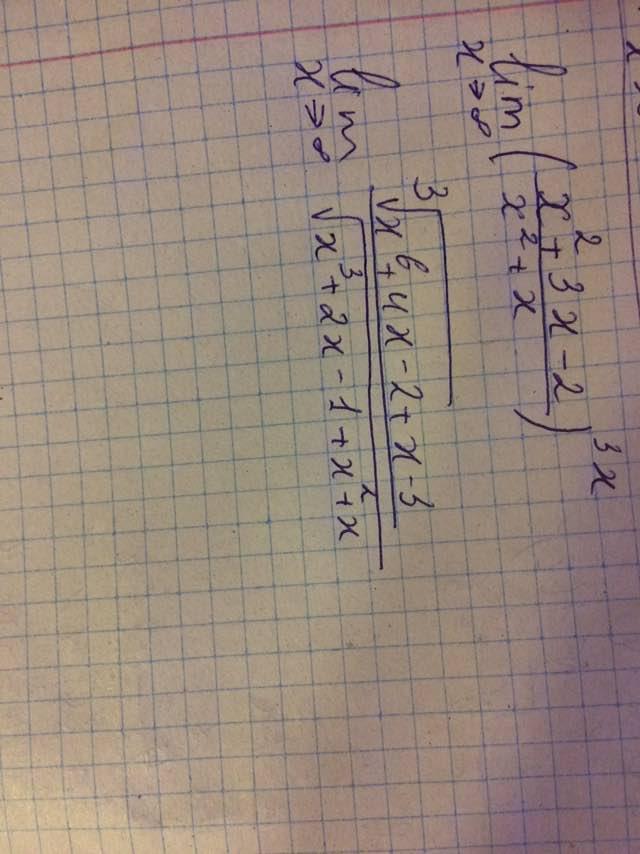 lim x→∞ ((x² + 3x - 2)/(x² + x))^(3x)
lim x→∞ (∛(x⁶ + 4x - 2) + x - 3)/(√(x³ + 2x - 1 + x² + x))